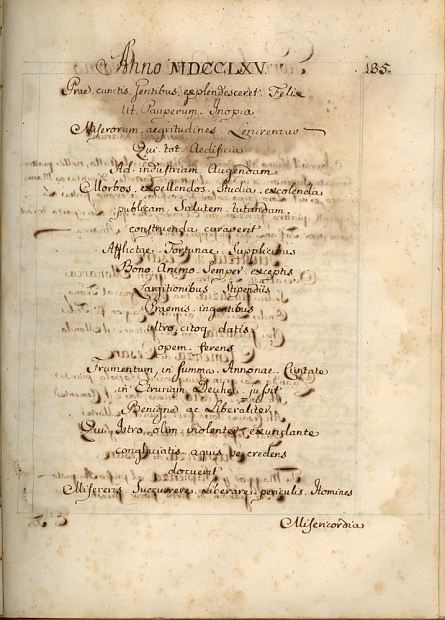 Anno MDCCLXV. 185.
Prae. cunctis. Gentibus. explendesceret. Felix
Ut. Pauperum. Inopia
Miserorum. aegritudines Lenirentur
Qui. tot. Aedificia
Ad. industriam Augendam
Morbos. expellendos. Studia. excolenda
publicam. Salutem. tutandam.
construenda curaverit
Afflictae. Fortunae. Supplicibus
Bono. Animo. Semper. exceptis
Largitionibus. Stipendiis
Praemis. ingentibus
ultro. citoq. datis
opem. ferens
Frumentum, in summa. Annonae. Caritate
in. Etruriam. Devehe. jussit
Benigne ac Liberaliter
Qui. Istro, olim violenter exundante
conglaciatis aquis
docuerit
Misereris. Succurrere. Liberare. periculis. Homines
Misericordia